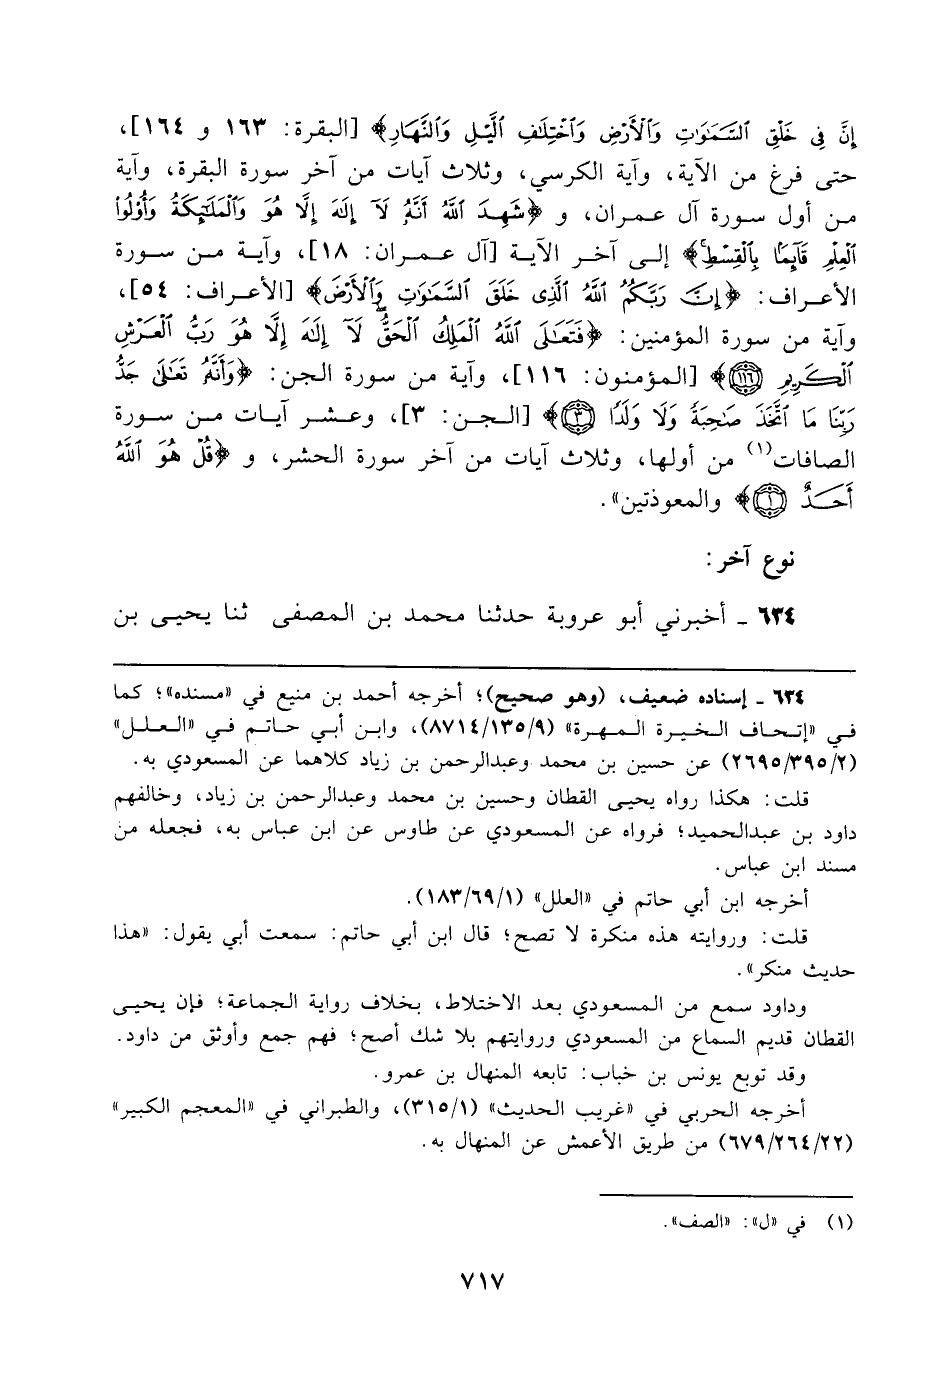 إِنَّ فِي خَلْقِ السَّمَٰوَٰتِ وَالْأَرْضِ وَاخْتِلَٰفِ الَّيْلِ وَالنَّهَارِ﴾ [البقرة: ١٦٣ و ١٦٤]،
حتى فرغ من الآية، وآية الكرسي، وثلاث آيات من آخر سورة البقرة، وآية
من أول سورة آل عمران، و ﴿شَهِدَ اللَّهُ أَنَّهُ لَآ إِلَٰهَ إِلَّا هُوَ وَالْمَلَٰٓئِكَةُ وَأُوْلُوا
الْعِلْمِ قَآئِمًۢا بِالْقِسْطِ﴾ إلى آخر الآية [آل عمران: ١٨]، وآية من سورة
الأعراف: ﴿إِنَّ رَبَّكُمُ اللَّهُ الَّذِى خَلَقَ السَّمَٰوَٰتِ وَالْأَرْضَ﴾ [الأعراف: ٥٤]،
وآية من سورة المؤمنين: ﴿فَتَعَٰلَى اللَّهُ الْمَلِكُ الْحَقُّ لَآ إِلَٰهَ إِلَّا هُوَ رَبُّ الْعَرْشِ
الْكَرِيمِ ﴿١١٦﴾﴾ [المؤمنون: ١١٦]، وآية من سورة الجن: ﴿وَأَنَّهُ تَعَٰلَىٰ جَدُّ
رَبِّنَا مَا اتَّخَذَ صَٰحِبَةً وَلَا وَلَدًا ﴿٣﴾﴾ [الجن: ٣]، وعشر آيات من سورة
الصافات(١) من أولها، وثلاث آيات من آخر سورة الحشر، و ﴿قُلْ هُوَ اللَّهُ
أَحَدٌ ﴿١﴾﴾ والمعوذتين».
نوع آخر:
٦٣٤ ـ أخبرني أبو عروبة حدثنا محمد بن المصفى ثنا يحيى بن
٦٣٤ ـ إسناده ضعيف، (وهو صحيح)؛ أخرجه أحمد بن منيع في «مسنده»؛ كما
في «إتحاف الخيرة المهرة» (٨٧١٤/١٣٥/٩)، وابن أبي حاتم في «العلل»
(٢٦٩٥/٣٩٥/٢) عن حسين بن محمد وعبدالرحمن بن زياد كلاهما عن المسعودي به.
قلت: هكذا رواه يحيى القطان وحسين بن محمد وعبدالرحمن بن زياد، وخالفهم
داود بن عبدالحميد؛ فرواه عن المسعودي عن طاوس عن ابن عباس به، فجعله من
مسند ابن عباس.
أخرجه ابن أبي حاتم في «العلل» (١٨٣/٦٩/١).
قلت: وروايته هذه منكرة لا تصح؛ قال ابن أبي حاتم: سمعت أبي يقول: «هذا
حديث منكر».
وداود سمع من المسعودي بعد الاختلاط، بخلاف رواية الجماعة؛ فإن يحيى
القطان قديم السماع من المسعودي وروايتهم بلا شك أصح؛ فهم جمع وأوثق من داود.
وقد توبع يونس بن خباب: تابعه المنهال بن عمرو.
أخرجه الحربي في «غريب الحديث» (٣١٥/١)، والطبراني في «المعجم الكبير»
(٦٧٩/٢٦٤/٢٢) من طريق الأعمش عن المنهال به.
(١) في «ل»: «الصف».
٧١٧